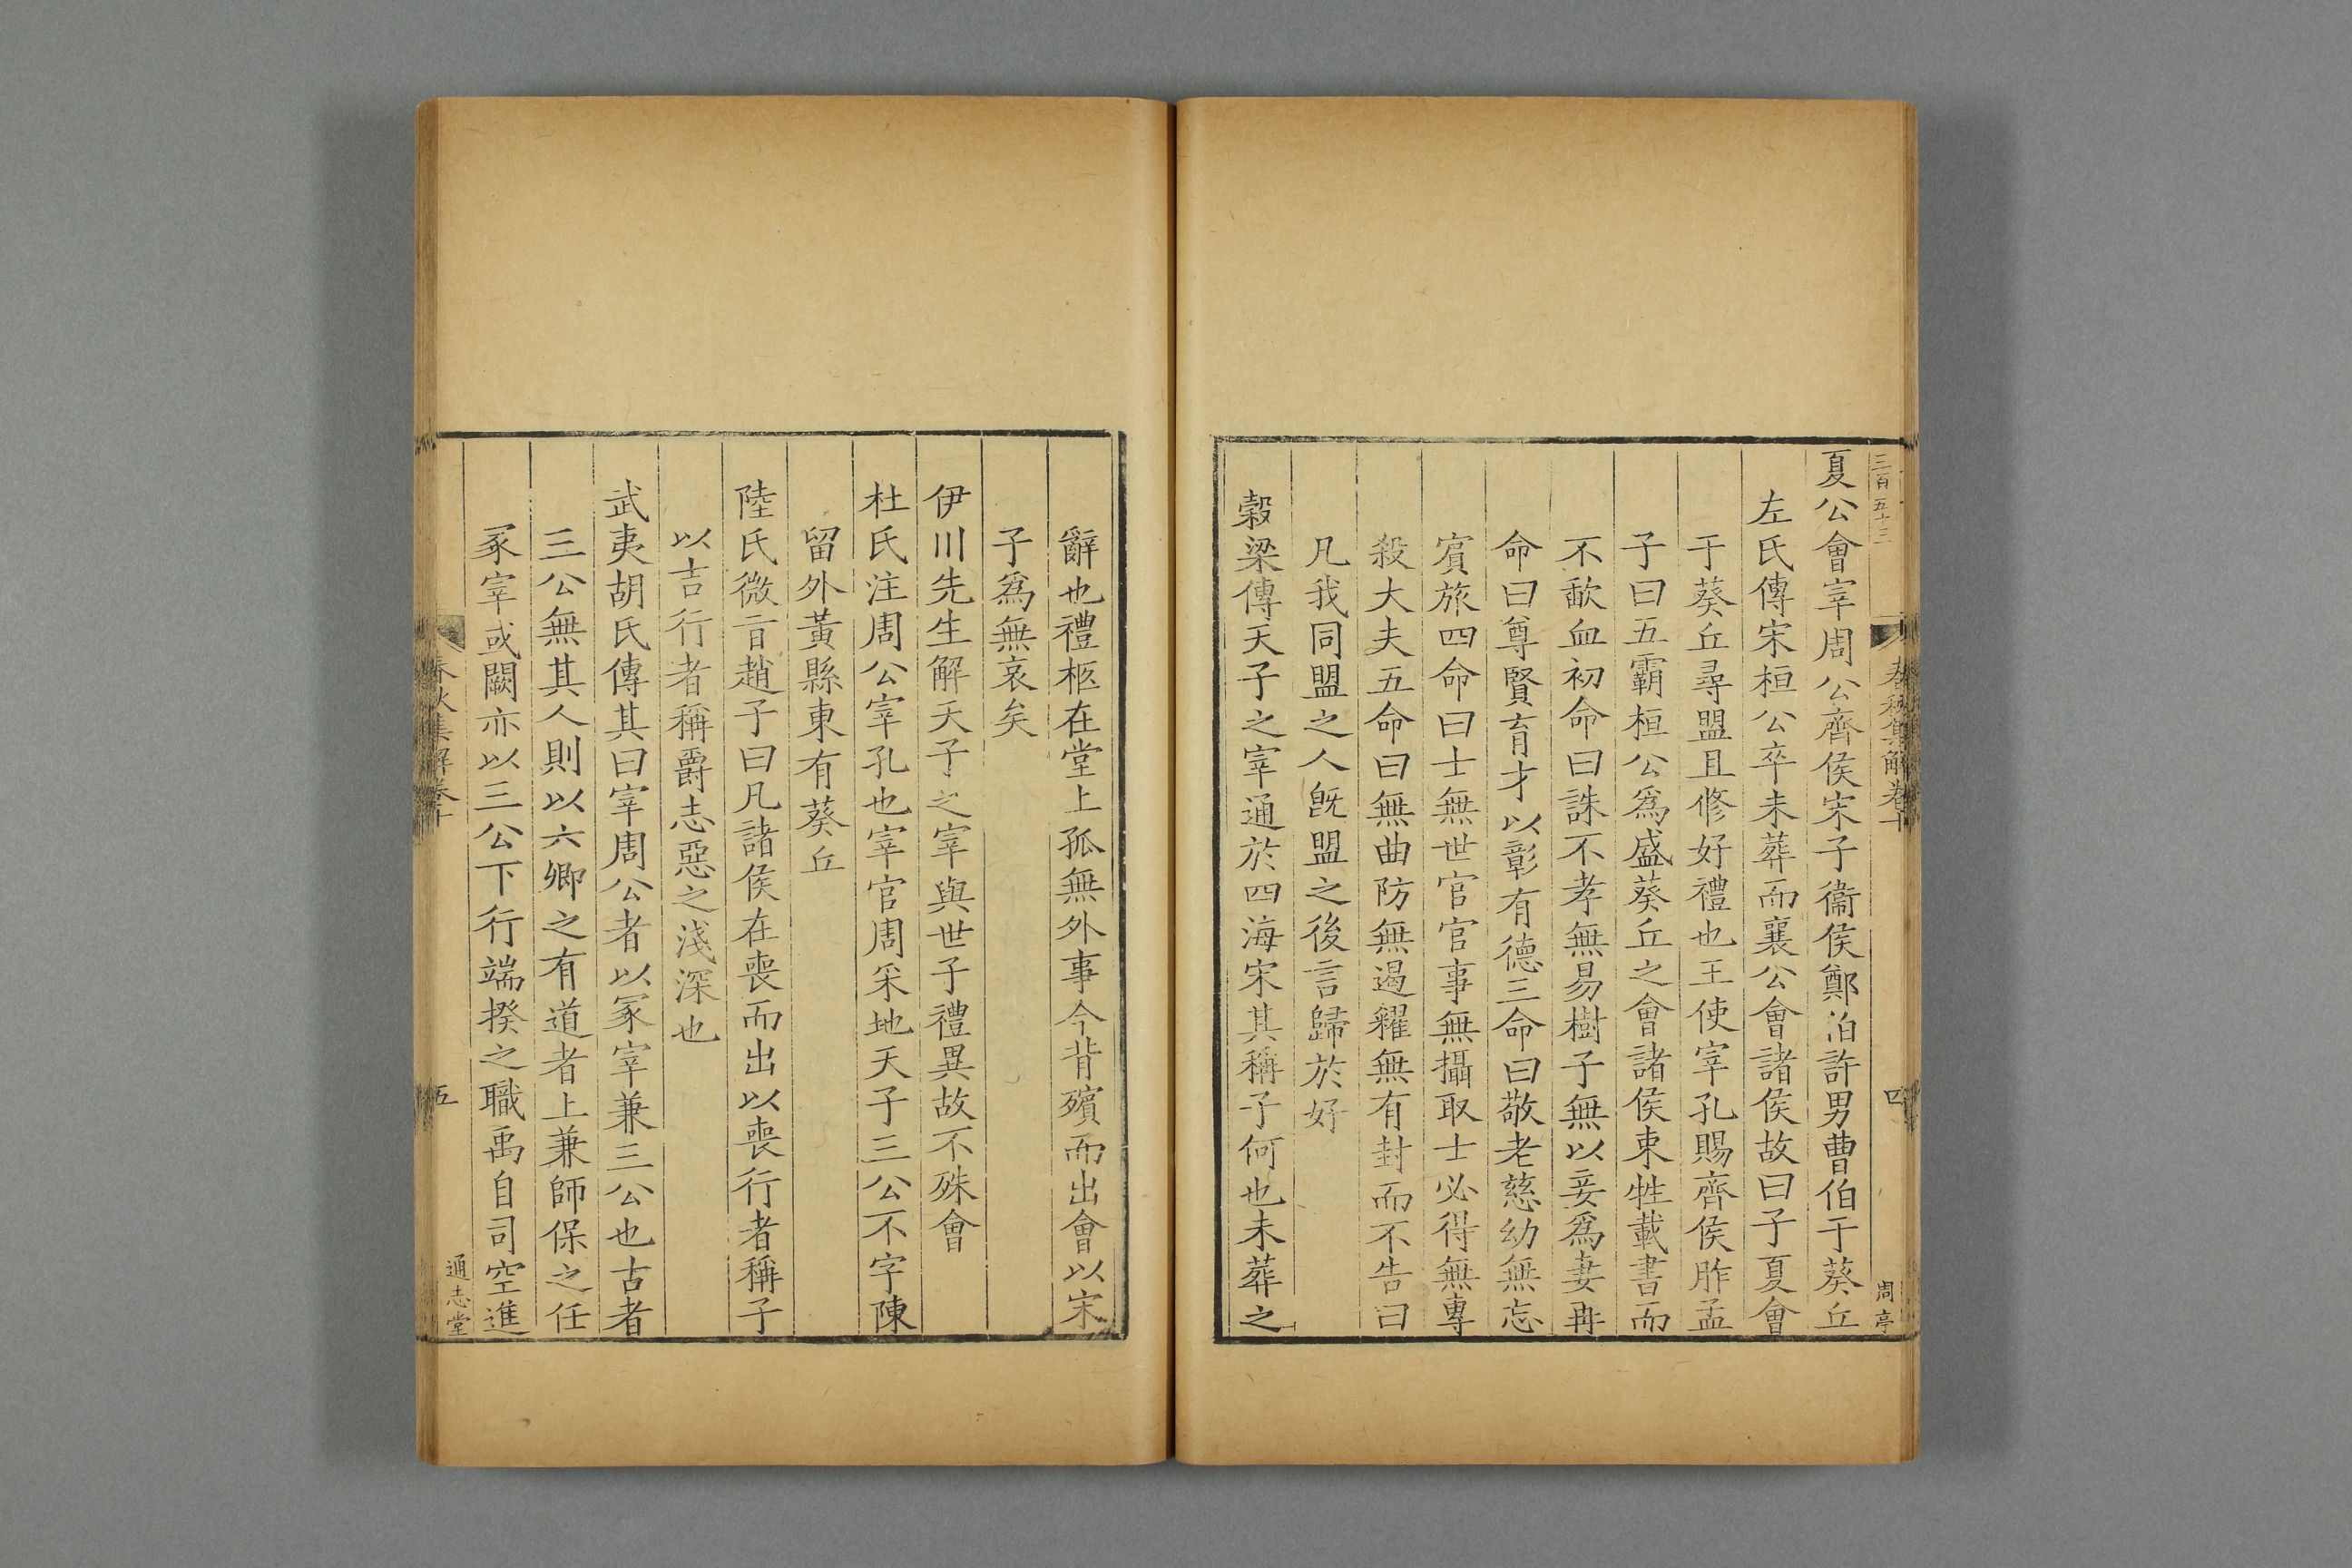 三百五十三
春秋集解卷十
四
周亭
夏公會宰周公齊侯宋子衞侯鄭伯許男曹伯于葵丘
左氏傳宋桓公卒未葬而襄公會諸侯故曰子夏會
于葵丘尋盟且修好禮也王使宰孔賜齊侯胙孟
子曰五霸桓公爲盛葵丘之會諸侯束牲載書而
不歃血初命曰誅不孝無易樹子無以妾爲妻再
命曰尊賢育才以彰有德三命曰敬老慈幼無忘
賔旅四命曰士無世官官事無攝取士必得無專
殺大夫五命曰無曲防無遏糴無有封而不告曰
凡我同盟之人旣盟之後言歸於好
榖梁傳天子之宰通於四海宋其稱子何也未葬之
辭也禮柩在堂上孤無外事今背殯而出會以宋
子爲無哀矣
伊川先生解天子之宰與世子禮異故不殊會
杜氏注周公宰孔也宰官周采地天子三公不字陳
留外黃縣東有葵丘
陸氏微旨趙子曰凡諸侯在喪而出以喪行者稱子
以吉行者稱爵志惡之淺深也
武夷胡氏傳其曰宰周公者以冢宰兼三公也古者
三公無其人則以六卿之有道者上兼師保之任
冢宰或闕亦以三公下行端揆之職禹自司空進
春秋集解卷十
五
通志堂